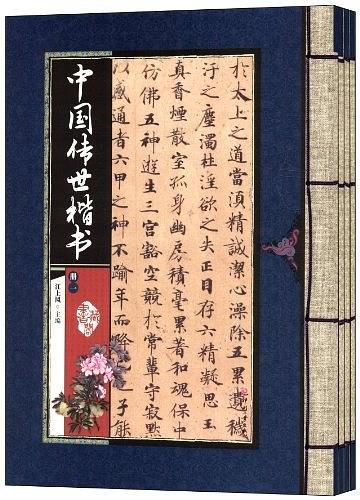 中国传世楷书
册一
於太上之道當須精誠潔心澡除五累遺穢
汙之塵濁杜淫欲之失正目存六精凝思玉
真香煙散室孤身幽房積毫累著和魂保中
仿佛五神遊生三宮豁空競於常輩守寂默
以感通者六甲之神不踰年而降子能
主编